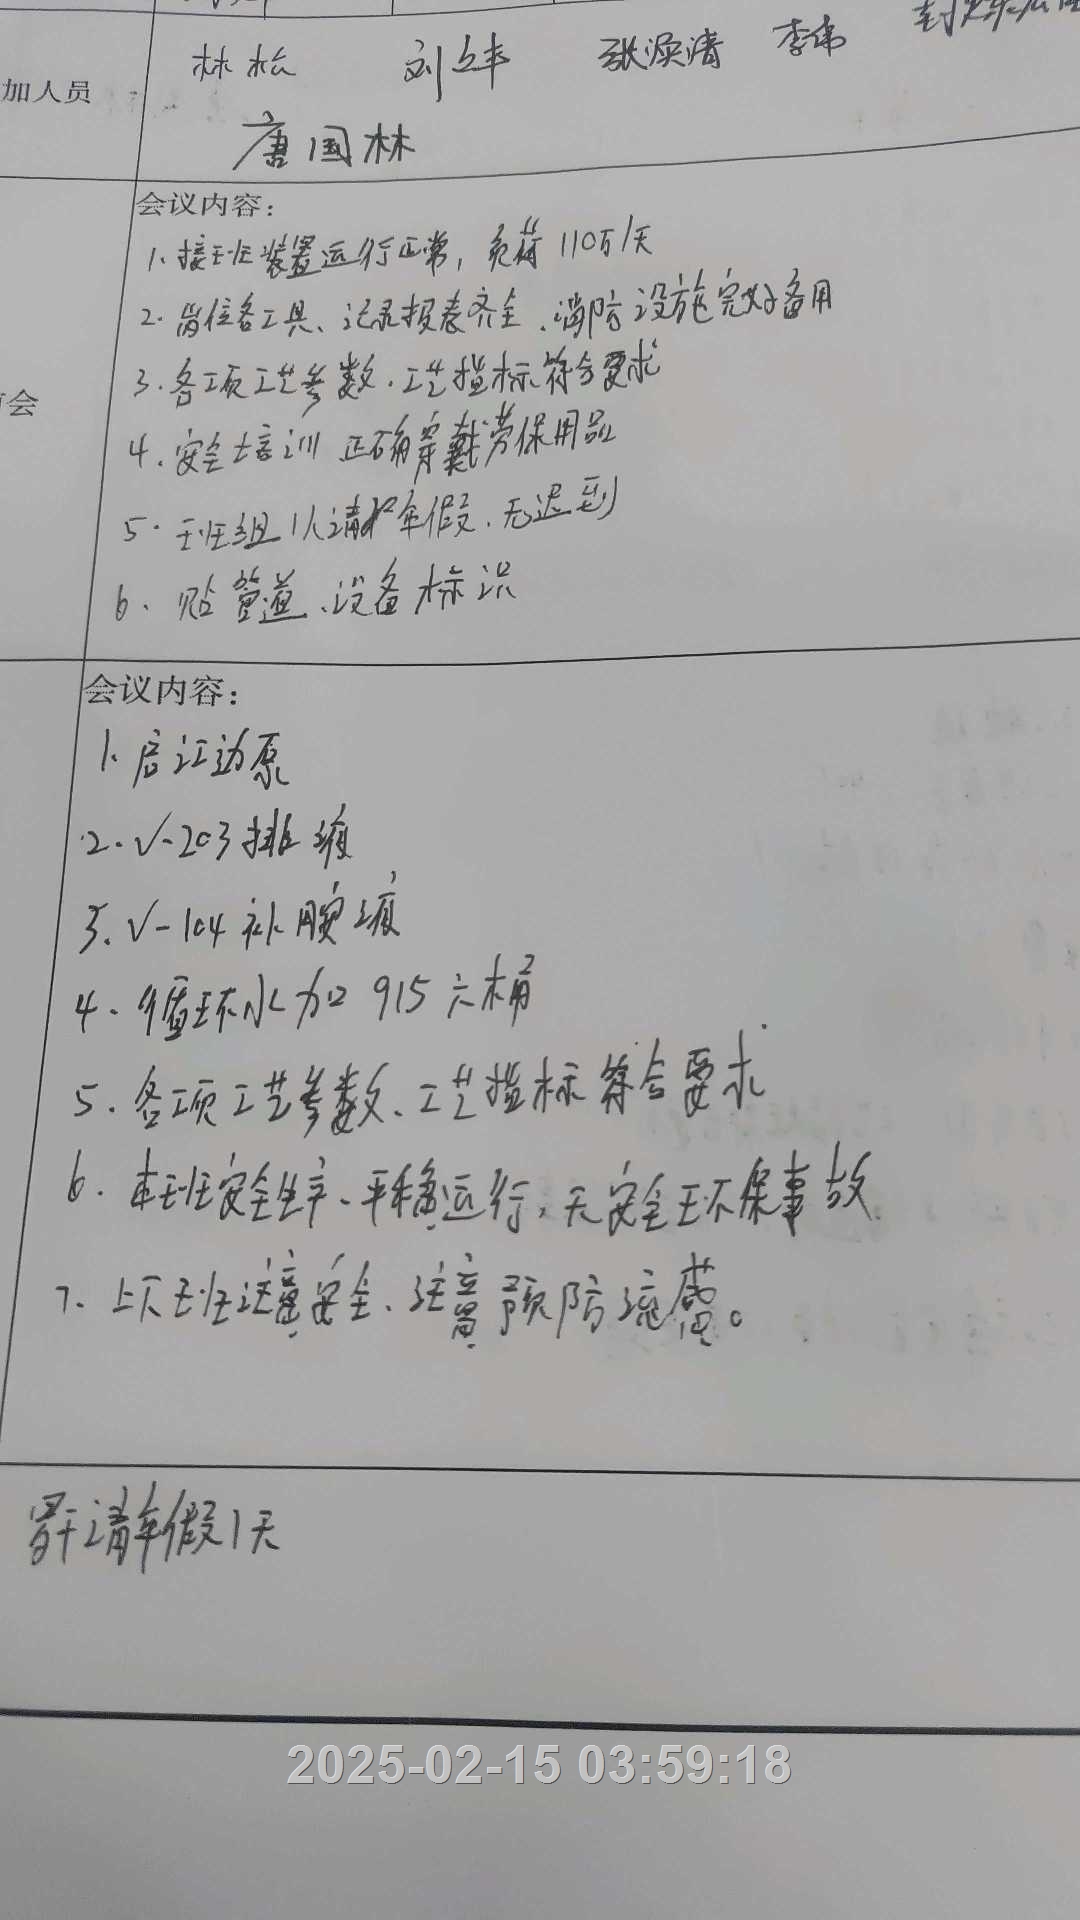 林松 刘立丰 张涣清 李伟
加人员
唐国林
会议内容：
1. 接班装置运行正常，负荷110万/天
2. 岗位各工具、记录报表齐全、消防设施完好备用
3. 各项工艺参数、工艺指标符合要求
会
4. 安全培训 正确穿戴劳保用品
5. 班组1人请年假、无迟到
6. 贴管道、设备标识
会议内容：
1. 启江边泵
2. V-203排液
3. V-104补胺液
4. 循环水加915六桶
5. 各项工艺参数、工艺指标符合要求
6. 本班安全生产、平稳运行，无安全环保事故.
7. 上下班注意安全、注意预防流感。
请年假1天
2025-02-15 03:59:18